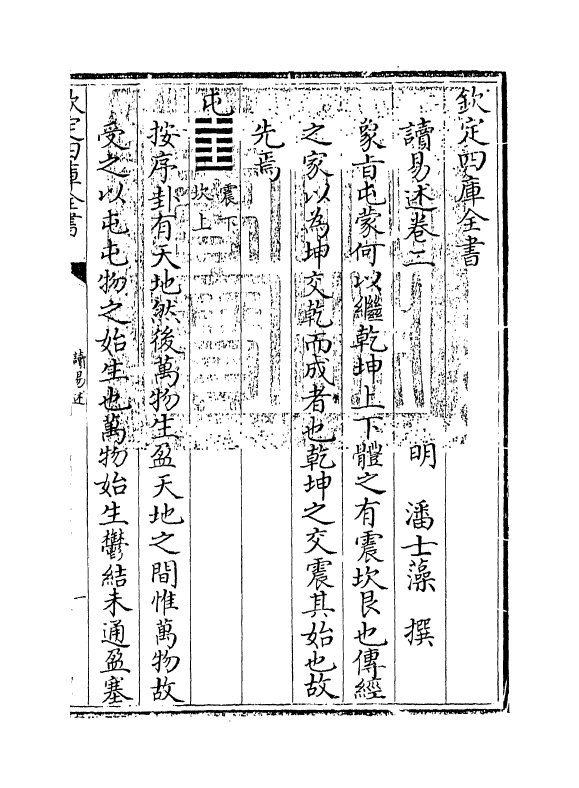 欽定四庫全書
讀易述卷二
明 潘士藻 撰
象旨屯蒙何以繼乾坤上下體之有震坎艮也傳經
之家以為坤交乾而成者也乾坤之交震其始也故
先焉
屯 震下 坎上
按序卦有天地然後萬物生盈天地之間惟萬物故
受之以屯屯物之始生也萬物始生鬱結未通盈塞
欽定四庫全書
讀易述
一